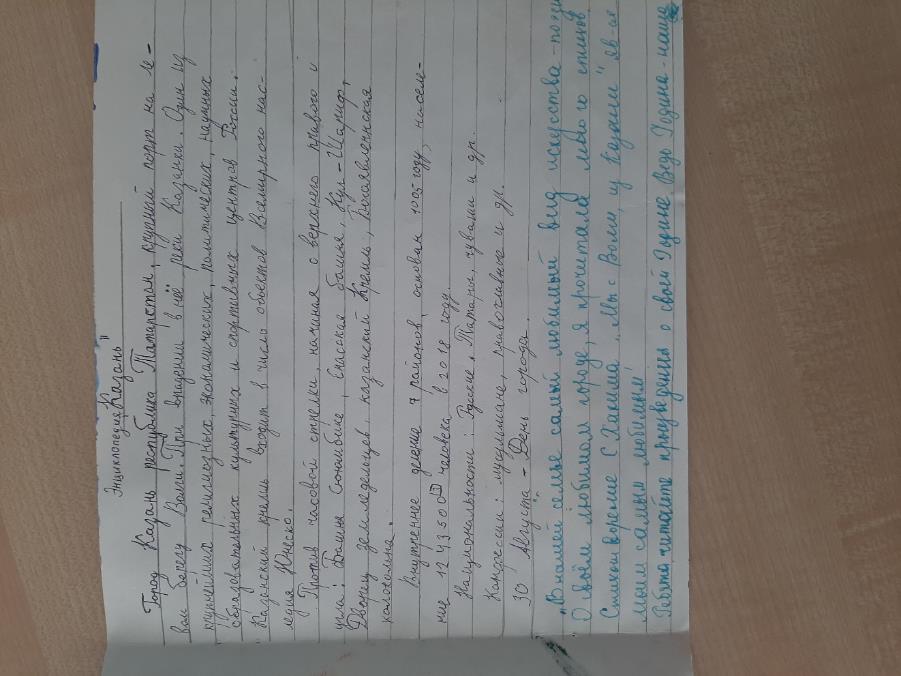 Энциклопедия
„Казань"
Город Казань республика Татарстан, крупный порт на ле-
вом берегу Волги. При впадении в неё реки Казанки. Один из
крупнейших религиозных, экономических, политических, научных
образовательных культурных и спортивных центров России.
"Казанский кремль входит в число объектов Всемирного нас-
ледия Юнеско.
Против часовой стрелки, начиная с верхнего правого и
угла: Башня Сююмбике, Спасская башня, Кул-Шариф,
Дворец земледельцев, казанский Кремль, Богоявленская
колокольня.
Внутреннее деление 7 районов, основан 1005 году, населе-
ние 1243500 человека в 2018 году.
Национальности: Русские, Татары, чуваши и др.
Конфессии: мусульмане, православные и др.
30 Августа - День города.
"В нашей семье самый любимый вид искусства -
О своём любимом городе, я прочитала много стихов
Стихотворение С. Хакима „Мы с Волги, из Казани" яв-ая
моим самым любимым!
Ребята читайте произведения о своей Родине Ведь Родина - наше